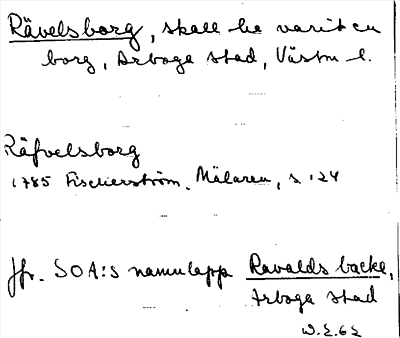 Rävelsborg, skall ha varit en
borg, Arboga stad, Västm l.
Räfvelsborg
1785 Fischerström, Mälaren, s. 124
Jfr. SOA:s namnlapp Ravalds backe,
Arboga stad
W.E.62